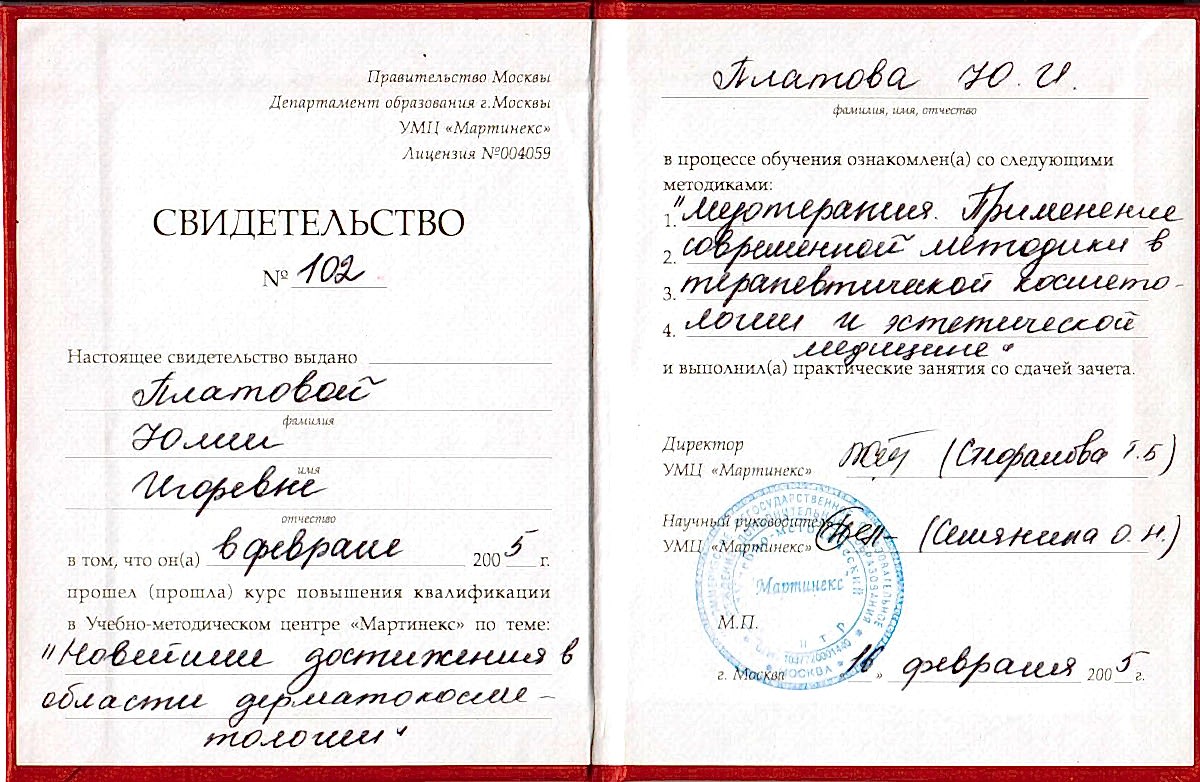 Правительство Москвы
Департамент образования г.Москвы
УМЦ «Мартинекс»
Лицензия №004059
СВИДЕТЕЛЬСТВО
№ 102
Настоящее свидетельство выдано
Платовой
фамилия
Юлии
имя
Игоревне
отчество
в том, что он(а) в феврале 2005 г.
прошел (прошла) курс повышения квалификации
в Учебно-методическом центре «Мартинекс» по теме:
"Новейшие достижения в
области дерматокосме-
тологии"
Платова Ю. И.
фамилия, имя, отчество
в процессе обучения ознакомлен(а) со следующими
методиками:
1. "Мезотерапия. Применение
2. современной методики в
3. терапевтической космето-
4. логии и эстетической
медицине"
и выполнил(а) практические занятия со сдачей зачета.
Директор
УМЦ «Мартинекс» Т.Б)
Научный руководитель
УМЦ «Мартинекс» (Семянина О.Н.)
Мартинекс
М.П.
г. Москва «16» февраля 2005 г.
МОСКВА